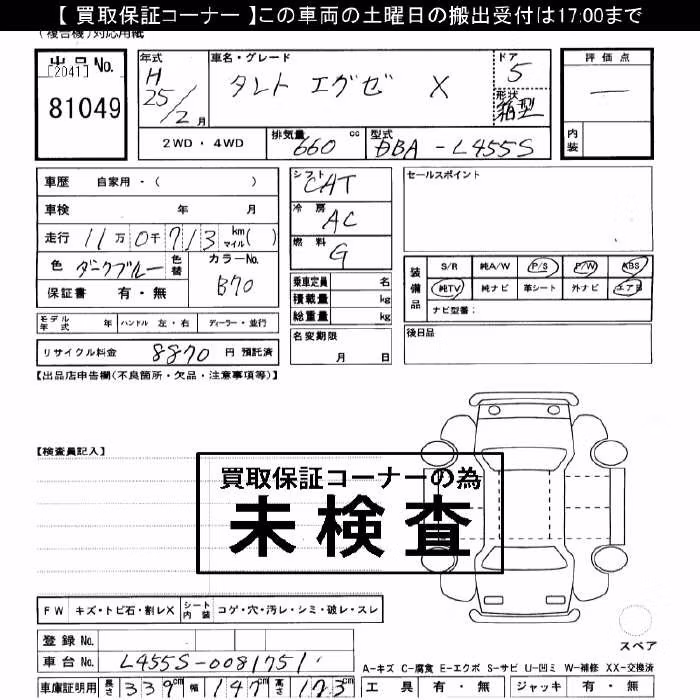 【 買取保証コーナー 】この車両の土曜日の搬出受付は17:00まで
(複合機)対応用紙
出品 No.
[2041]
81049
年式
H
25/2月
車名・グレード
タント エグゼ X
ドア
5
形状
箱型
評価点
—
内装
2WD・4WD
排気量
660 cc
型式
DBA-L455S
車歴 自家用・( )
車検 年 月
走行 11万0千713 km マイル( )
色 ダークブルー 色替 カラーNo. B70
保証書 有・無
シフト CAT
冷房 AC
燃料 G
乗車定員 名
積載量 kg
総重量 kg
セールスポイント
装備品
S/R 純A/W P/S P/W ABS
純TV 純ナビ 革シート 外ナビ エアB
ナビ型番:
モデル年式 年 ハンドル 左・右 ディーラー・並行
名変期限
月 日
後日品
リサイクル料金 8870 円 預託済
【出品店申告欄(不良箇所・欠品・注意事項等)】
【検査員記入】
買取保証コーナーの為
未検査
FW キズ・トビ石・割レX シート内装 コゲ・穴・汚レ・シミ・破レ・スレ
スペア
登録 No.
車台 No. L455S-0081751
A-キズ C-腐食 E-エクボ S-サビ U-凹ミ W-補修 XX-交換済
車庫証明用 長さ 339cm 幅 147cm 高さ 173cm
工具 有・無 ジャッキ 有・無